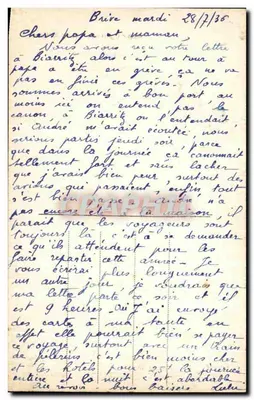 Brive mardi 28/7/36
Chers papa et maman,
Nous avons reçu votre lettre
à Biarritz, alors c'est au tour à
papa a être en grève, ça ne va
pas en finir ces grèves. Nous
sommes arrivés à bon port au
moins ici on entend pas le
canon, à Biarritz ou l'entendait
si André m'avait écoutée, nous
serions partis jeudi soir, parce
que dans la journée ça canonnait
tellement fort et sans lacher
que j'avais bien peur, surtout des
avions qui passaient, enfin tout
s'est bien passé. André n'a
pas encore été à la maison, il
parait que les voyageurs sont
toujours là c'est à se demander
ce qu'ils attendent pour les
faire repartir cette année. Je
vous écrirai plus longuement
un autre jour je voudrais que
ma lettre parte ce soir et il
est 9 heures. J'ai envoyé
des cartes à ma tante en
effet elle pourrait bien se payer
ce voyage, surtout avec un train
de c'est bien moins cher
et les hôtels pour 25 la journée
entière et la nuit c'est abordable
Au revoir bons baisers